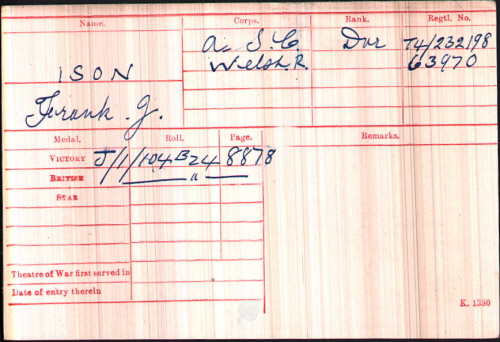 Name. Corps. Rank. Regtl. No.
A. S. C. Dvr T4/232198
ISON Welsh. R. 63970
Frank. J.
Medal. Roll. Page. Remarks.
VICTORY J/1/104 B24 8878
BRITISH — " —
STAR
Theatre of War first served in
Date of entry therein
K. 1380